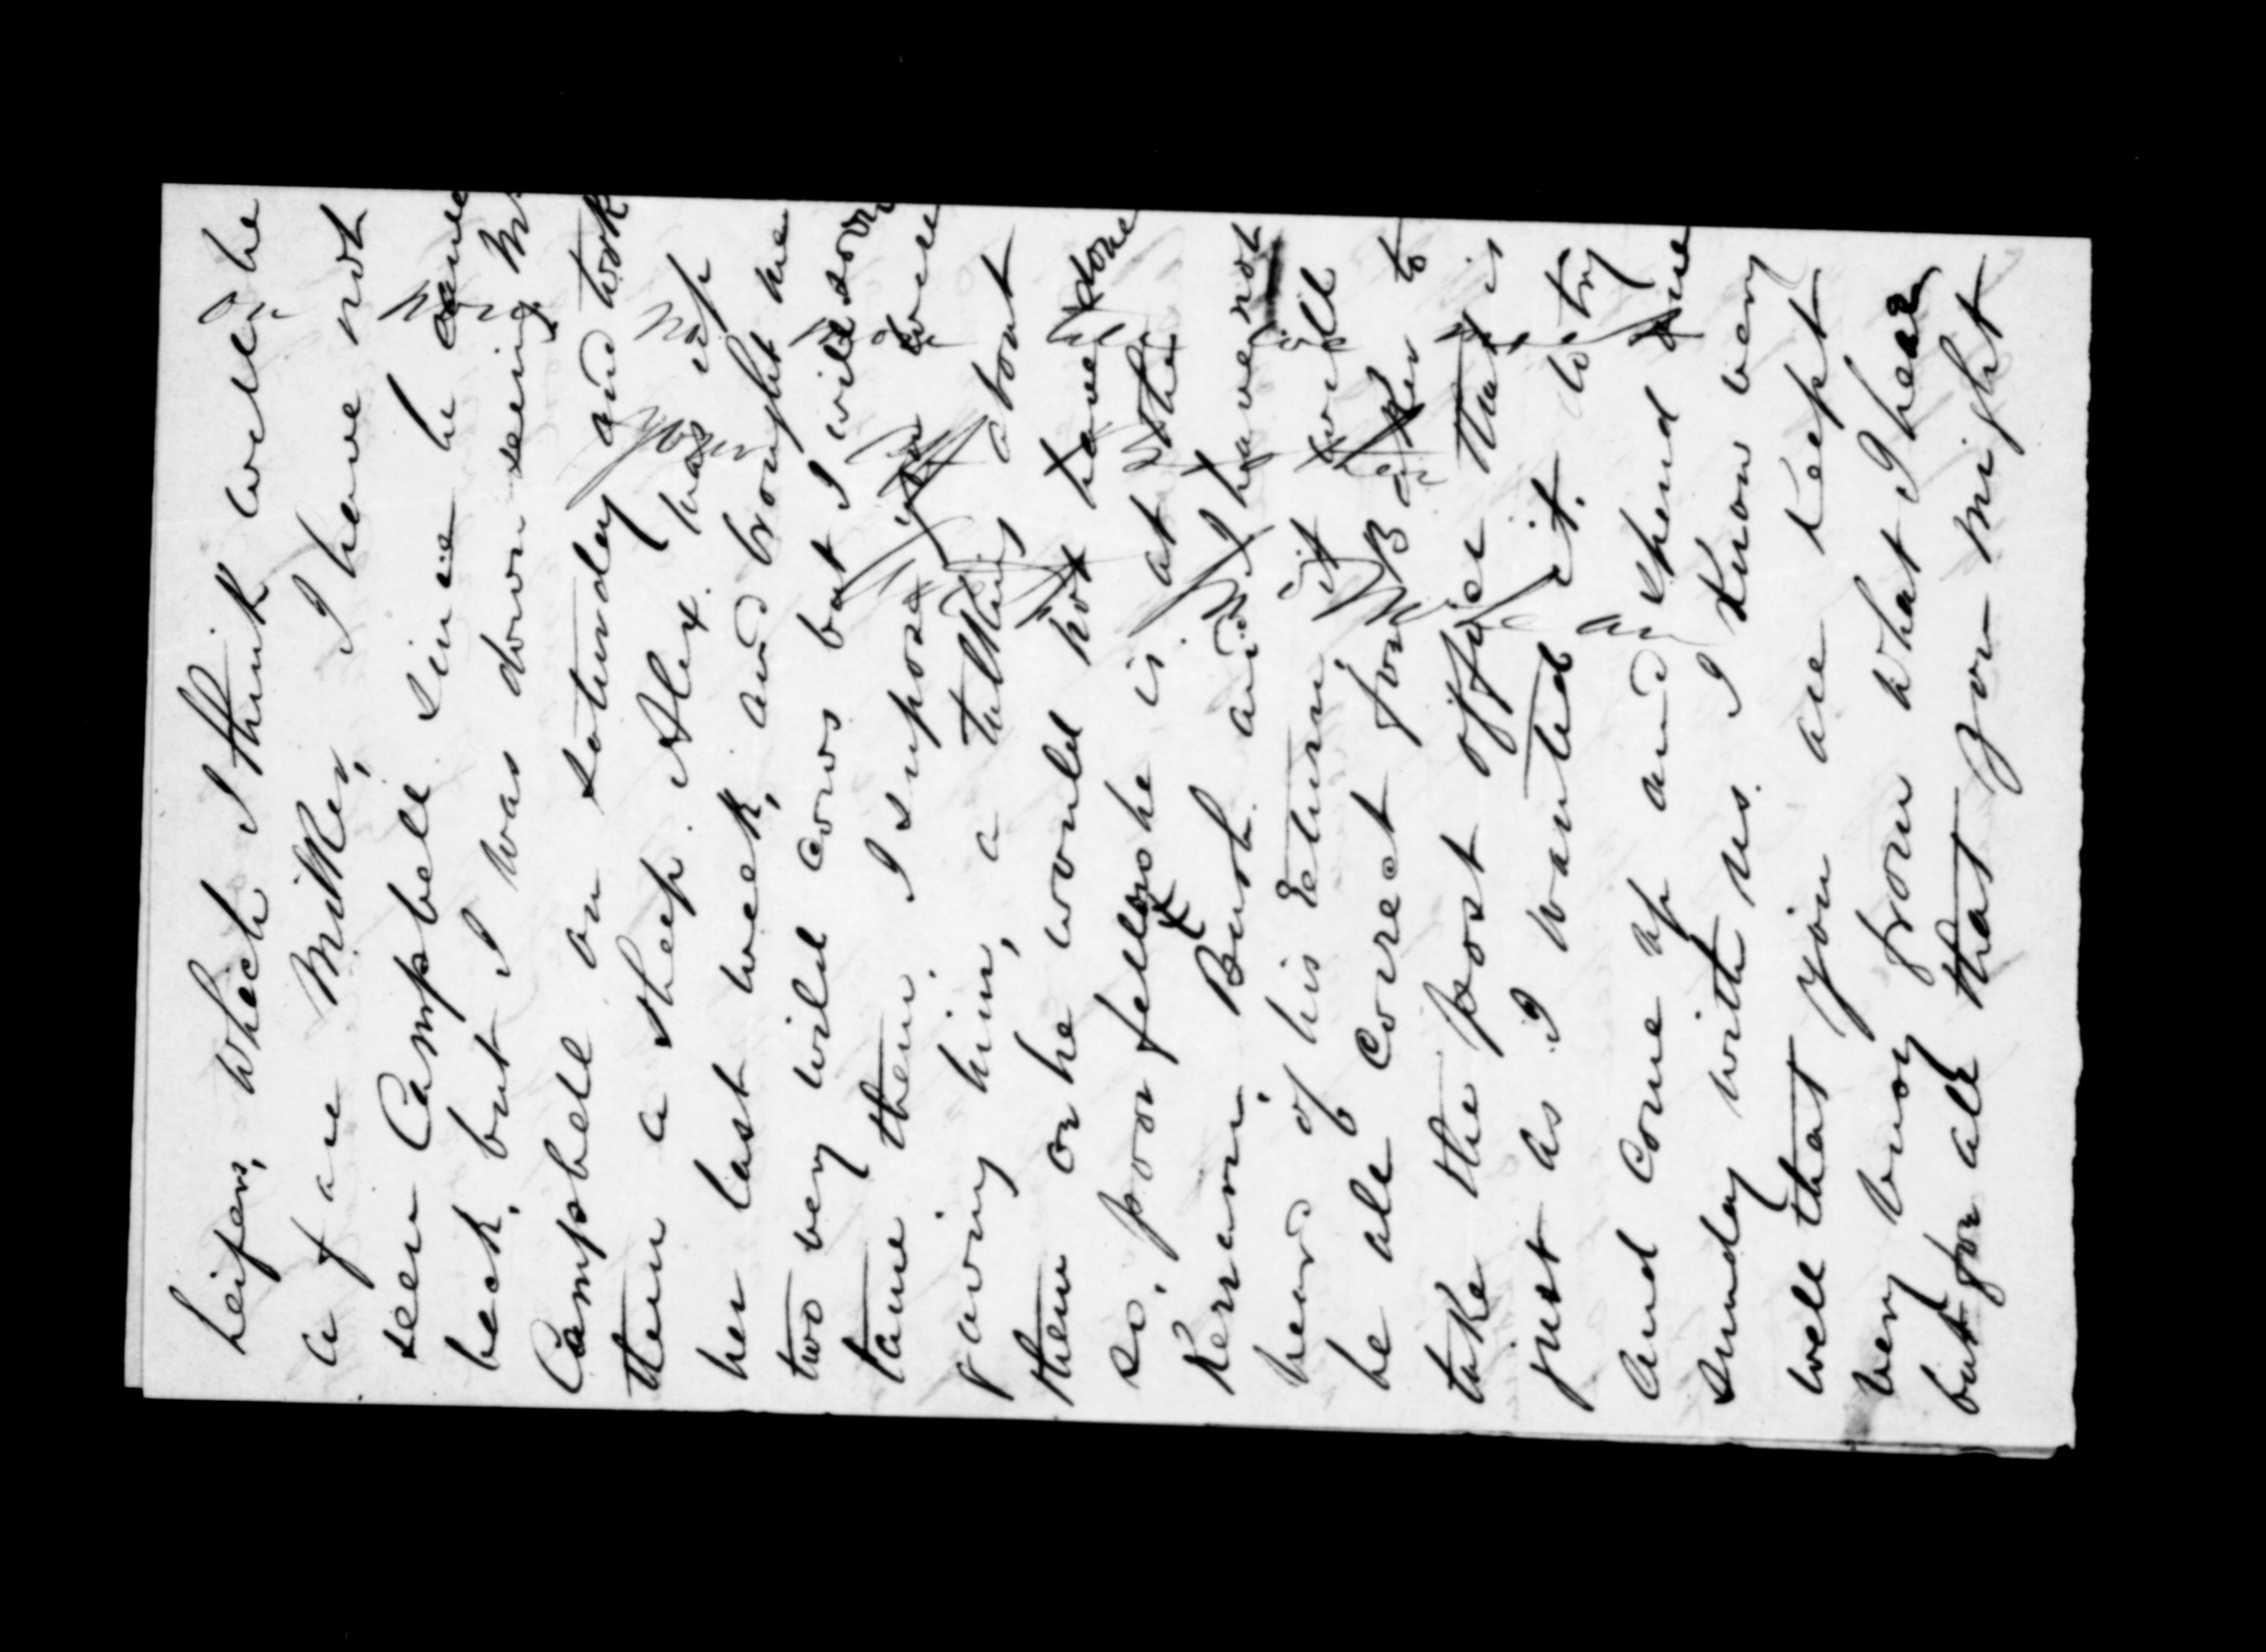 heifers, which I think will be
a fare Milker, I have not
seen Campbell since he came
back, but I was down seeing Mrs
Campbell on saturday and took
them a sheep. Alex. was up
her last week, and brought me
two very wild cows but I will soon
tame them. I supose you were
gaving him, a talking about
them or he would not have done
so, poor fellow he is at the
Kerreru Bush. and I have not
heard of his return, it will
be all correct for Baker to
take the post office that is
just as I wanted it. to try
and come up and spend one
sunday with us. I know very
well that you are keept
very busy from what I hear
but for all that you might